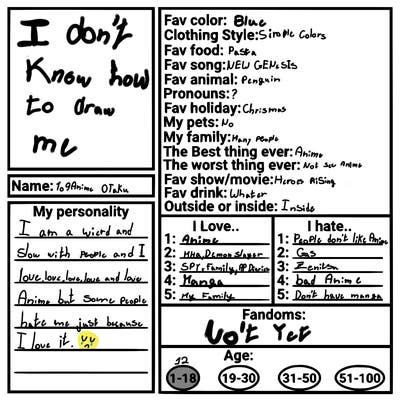 I don't
Know how
to draw
me
Name: 109Anime OTaku
My personality
I am a wierd and
slow with people and I
love,love,love,love and love
Anime but some people
hate me just because
I love it.
Fav color: Blue
Clothing Style: Simple Colors
Fav food: Pasta
Fav song: NEW GENESIS
Fav animal: Penguin
Pronouns: ?
Fav holiday: Chrismas
My pets: No
My family: Many people
The Best thing ever: Anime
The worst thing ever: Not see Anime
Fav show/movie: Heroes Rising
Fav drink: Whater
Outside or inside: Inside
I Love..
1: Anime
2: MHA, Demon Slayer
3: SPY, Family,
4: Manga
5: My Family
I hate..
1: People don't like Anime
2: Gas
3: Zenitsu
4: bad Anime
5: Don't have manga
Fandoms:
No't Yet
Age:
12
1-18 19-30 31-50 51-100